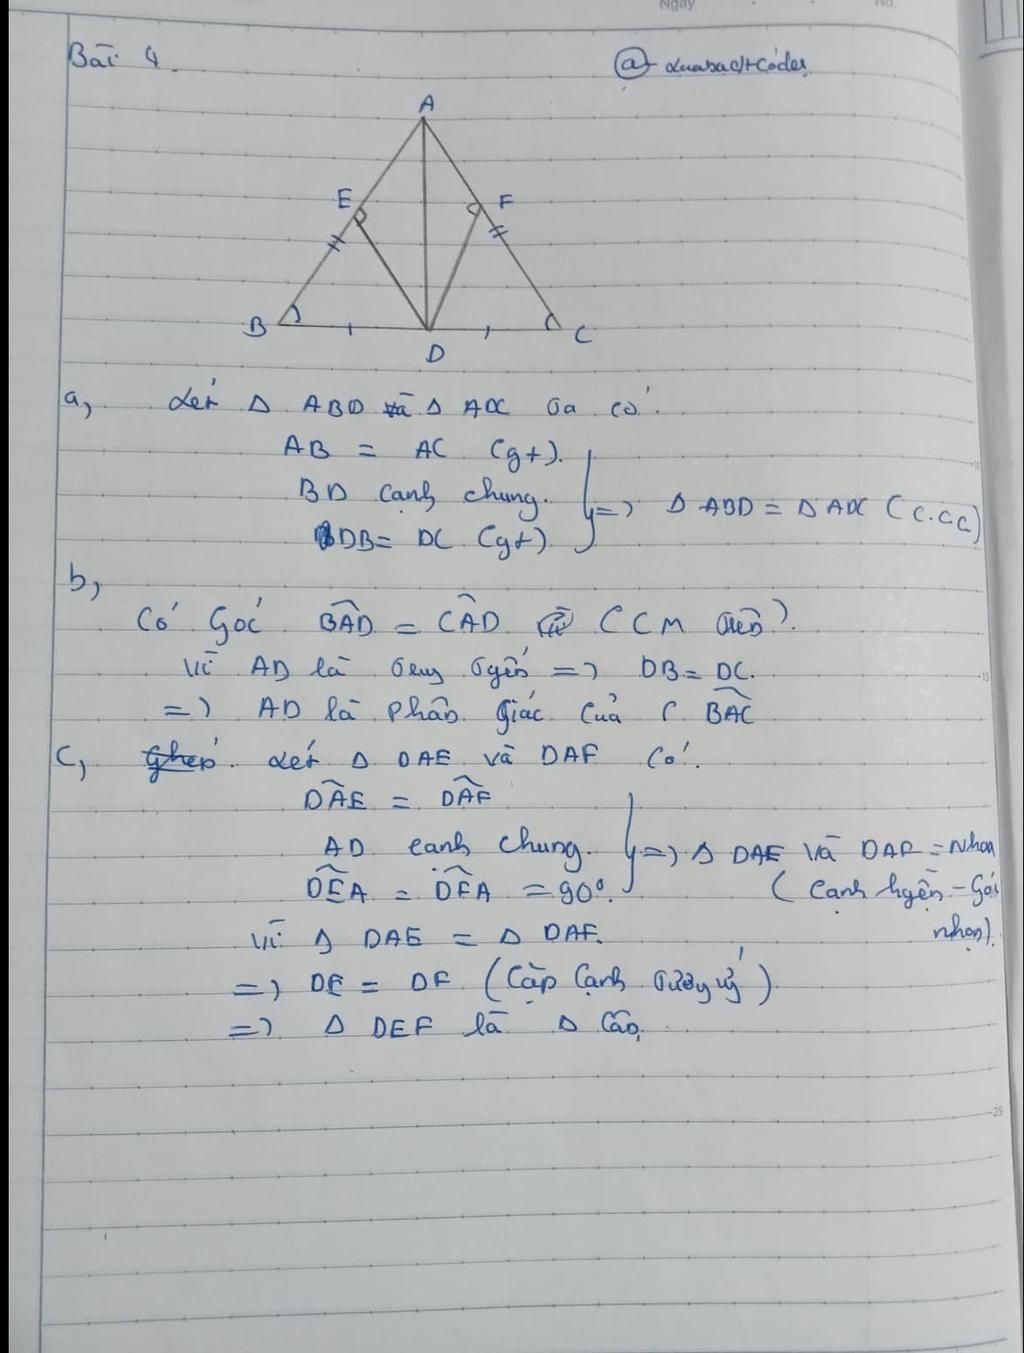 Ngày
No.
Bài 4.
A
E
F
B
D
C
a, Xét Δ ABD và Δ ADC ta có:
AB = AC (gt).
BD cạnh chung.
DB = DC (gt)
=> Δ ABD = Δ ADC (c.c.c)
b,
Có góc BAD = CAD (CCM trên).
vì AD là => DB = DC.
=> AD là phân giác của BAC
c, Xét Δ DAE và DAF có:
DAE = DAF
AD cạnh chung.
DEA = DFA = 90°.
=> Δ DAE và DAF = nhau
(cạnh hyền - góc
nhọn).
vì Δ DAE = Δ DAF.
=> DE = DF (cặp cạnh tương ứ)
=> Δ DEF là Δ cân.
15
25